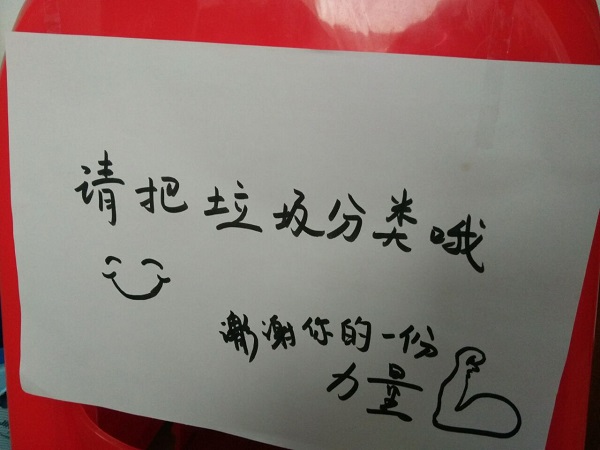 请把垃圾分类哦
谢谢你的一份
力量